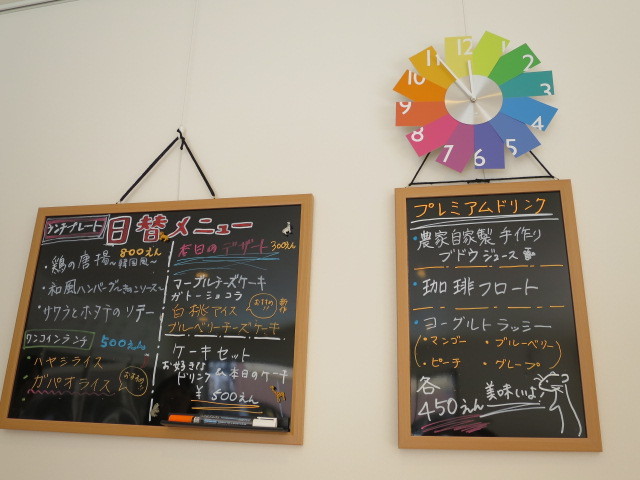 12
1
2
3
4
5
6
7
8
9
10
11
ランチプレート
日替メニュー
800えん
・鶏の唐揚
〜韓国風〜
・和風ハンバーグ
・サワラとホタテのソテー
ワンコインランチ 500えん
・ハヤシライス
・ガパオライス
おすすめ
本日のデザート 300えん
マーブルチーズケーキ
ガトーショコラ
白桃アイス
おすすめ!
新作
ブルーベリーチーズケーキ
ケーキセット
お好きな
ドリンク & 本日のケーキ
¥500えん
プレミアムドリンク
・農家自家製 手作り
ブドウジュース
・珈琲フロート
・ヨーグルトラッシー
・マンゴー ・ブルーベリー
・ピーチ ・グレープ
各
450えん 美味いよ!